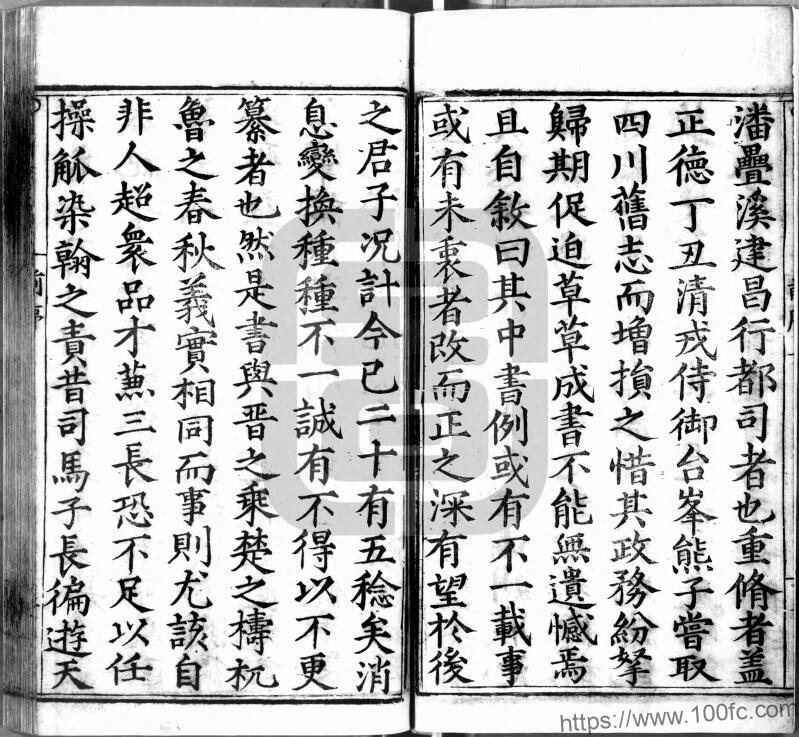 潘疊溪建昌行都司者也重脩者盖
正德丁丑清戎侍御台峯熊子嘗取
四川舊志而增損之惜其政務紛拏
歸期促迫草草成書不能無遺憾焉
且自敘曰其中書例或有不一載事
或有未衷者改而正之深有望於後
之君子况計今已二十有五稔矣消
息變換種種不一誠有不得以不更
纂者也然是書與晋之乘楚之檮杌
魯之春秋義實相同而事則尤該自
非人超衆品才蒹三長恐不足以任
操觚染翰之責昔司馬子長徧遊天
https://www.100fc.com